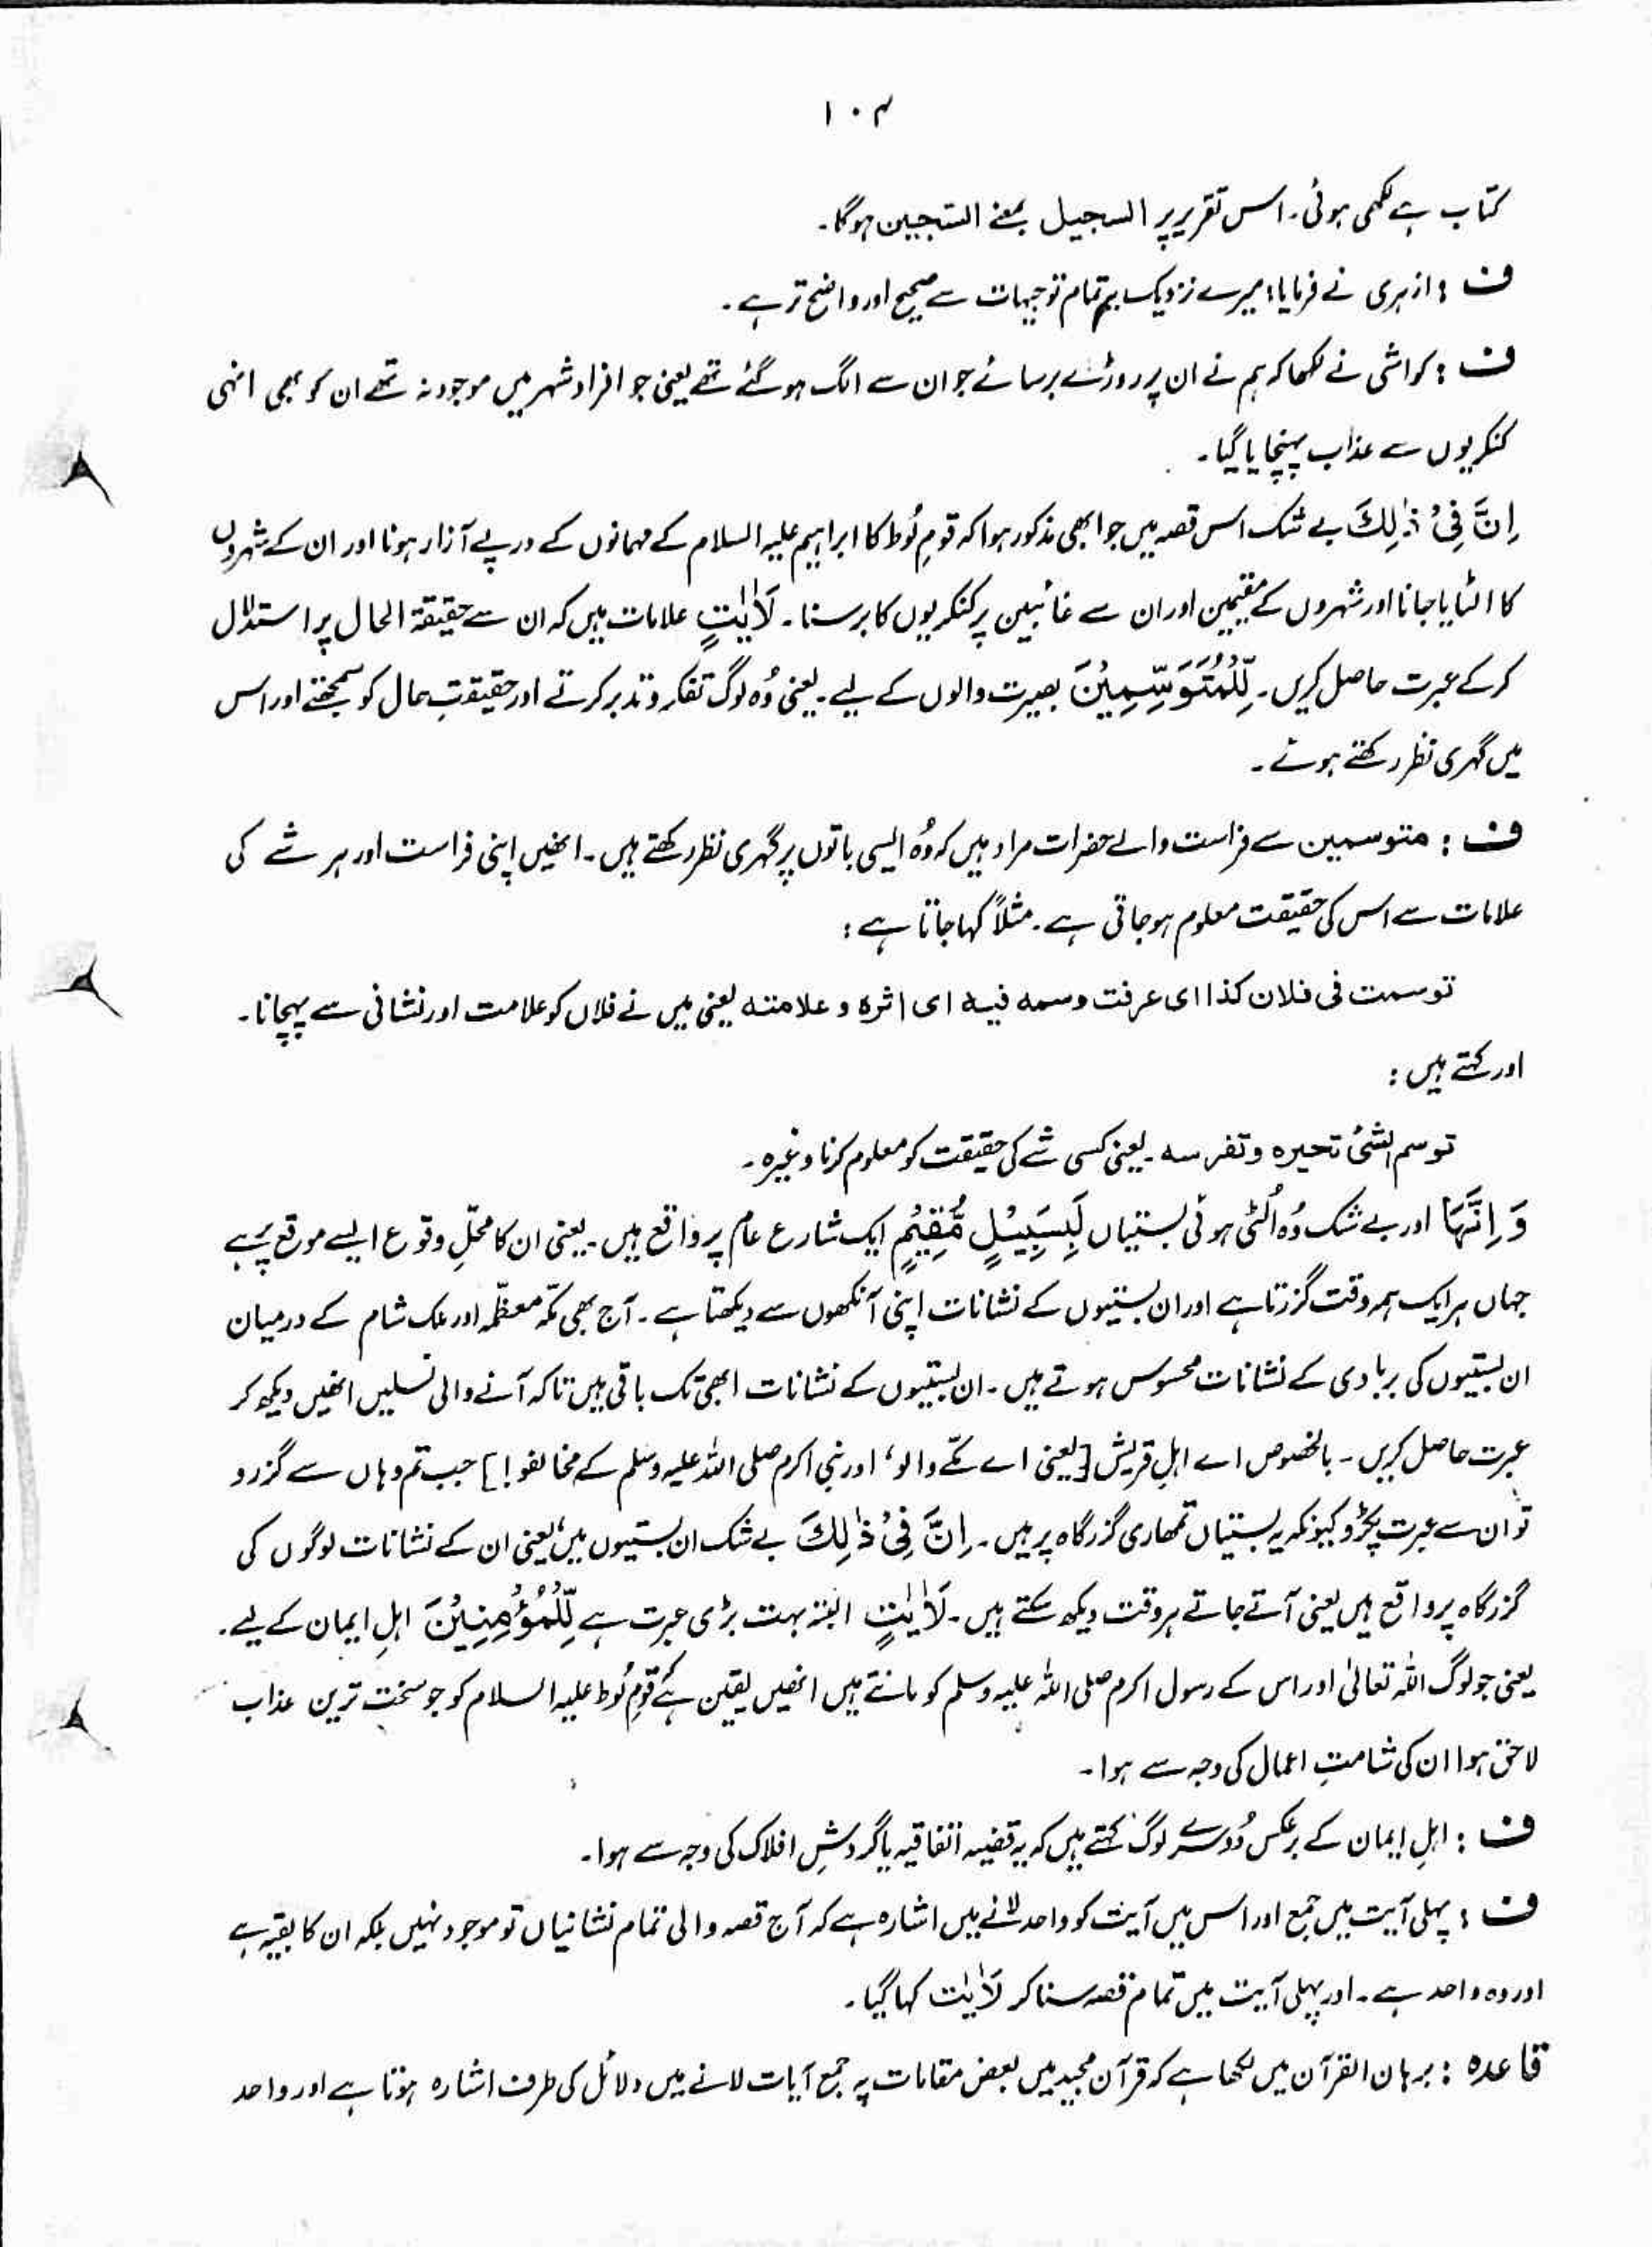 ۱۰۴
کتاب ہے لکھی ہوئی۔ اس تقریر پر السجیل بمعنے السّجین ہوگا۔
ف : ازہری نے فرمایا: میرے نزدیک یہ تمام توجیہات سے صحیح اور واضح تر ہے۔
ف : کواشی نے لکھا کہ ہم نے ان پر روڑے برسائے جو ان سے الگ ہوگئے تھے یعنی جو افراد شہر میں موجود نہ تھے ان کو بھی انہی
کنکریوں سے عذاب پہنچایا گیا۔
اِنَّ فِیْ ذٰلِكَ بے شک اس قصہ میں جو ابھی مذکور ہوا کہ قومِ لُوط کا ابراہیم علیہ السلام کے مہمانوں کے درپے آزار ہونا اور ان کے شہروں
کا الٹایا جانا اور شہروں کے مقیمین اور ان سے غائبین پر کنکریوں کا برسنا۔ لَاٰیٰتٍ علامات ہیں کہ ان سے حقیقۃ الحال پر استدلال
کرکے عبرت حاصل کریں۔ لِّلْمُتَوَسِّمِیْنَ بصیرت والوں کے لیے۔ یعنی وُہ لوگ تفکر و تدبر کرتے اور حقیقتِ حال کو سمجھتے اور اس
میں گہری نظر رکھتے ہوئے۔
ف : متوسمین سے فراست والے حضرات مراد ہیں کہ وُہ ایسی باتوں پر گہری نظر رکھتے ہیں۔ انھیں اپنی فراست اور ہر شے کی
علامات سے اس کی حقیقت معلوم ہوجاتی ہے۔ مثلاً کہا جاتا ہے :
توسمت فی فلان کذا ای عرفت وسمه فیه ای اثرہ و علامته یعنی میں نے فلاں کو علامت اور نشانی سے پہچانا۔
اور کہتے ہیں :
توسم الشئ تحیرہ و تفرسه۔ یعنی کسی شے کی حقیقت کو معلوم کرنا وغیرہ۔
وَ اِنَّهَا اور بے شک وُہ اُلٹی ہوئی بستیاں لَبِسَبِیْلٍ مُّقِیْمٍ ایک شارع عام پر واقع ہیں۔ یعنی ان کا محلِّ وقوع ایسے موقع پر ہے
جہاں ہر ایک ہمہ وقت گزرتا ہے اور ان بستیوں کے نشانات اپنی آنکھوں سے دیکھتا ہے۔ آج بھی مکّہ معظّمہ اور ملک شام کے درمیان
ان بستیوں کی بربادی کے نشانات محسوس ہوتے ہیں۔ ان بستیوں کے نشانات ابھی تک باقی ہیں تاکہ آنے والی نسلیں انھیں دیکھ کر
عبرت حاصل کریں۔ بالخصوص اے اہلِ قریش [یعنی اے مکّے والو، اور نبی اکرم صلی اللہ علیہ وسلم کے مخالفو!] جب تم وہاں سے گزرو
تو ان سے عبرت پکڑو کیونکہ یہ بستیاں تمھاری گزرگاہ پر ہیں۔ اِنَّ فِیْ ذٰلِكَ بے شک ان بستیوں میں، یعنی ان کے نشانات لوگوں کی
گزرگاہ پر واقع ہیں یعنی آتے جاتے ہر وقت دیکھ سکتے ہیں۔ لَاٰیٰتٍ البتہ بہت بڑی عبرت ہے لِّلْمُؤْمِنِیْنَ اہلِ ایمان کے لیے۔
یعنی جو لوگ اللہ تعالیٰ اور اس کے رسول اکرم صلی اللہ علیہ وسلم کو مانتے ہیں انھیں یقین ہے کہ قومِ لُوط علیہ السلام کو جو سخت ترین عذاب
لاحق ہوا ان کی شامتِ اعمال کی وجہ سے ہوا۔
ف : اہلِ ایمان کے برعکس دُوسرے لوگ کہتے ہیں کہ یہ قضیہ اتفاقیہ یا گردشِ افلاک کی وجہ سے ہوا۔
ف : پہلی آیت میں جمع اور اس میں آیت کو واحد لانے میں اشارہ ہے کہ آج قصہ والی تمام نشانیاں تو موجود نہیں بلکہ ان کا بقیہ ہے
اور وہ واحد ہے۔ اور پہلی آیت میں تمام قصہ سناکر لَاٰیٰت کہا گیا۔
قاعدہ : برہان القرآن میں لکھا ہے کہ قرآن مجید میں بعض مقامات پہ جمع آیات لانے میں دلائل کی طرف اشارہ ہوتا ہے اور واحد